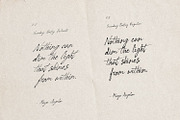 Nothing can
dim the light
that shines
from within.
Maya Angelou
Nothing can
dim the light
that shines
from within.
Maya Angelou